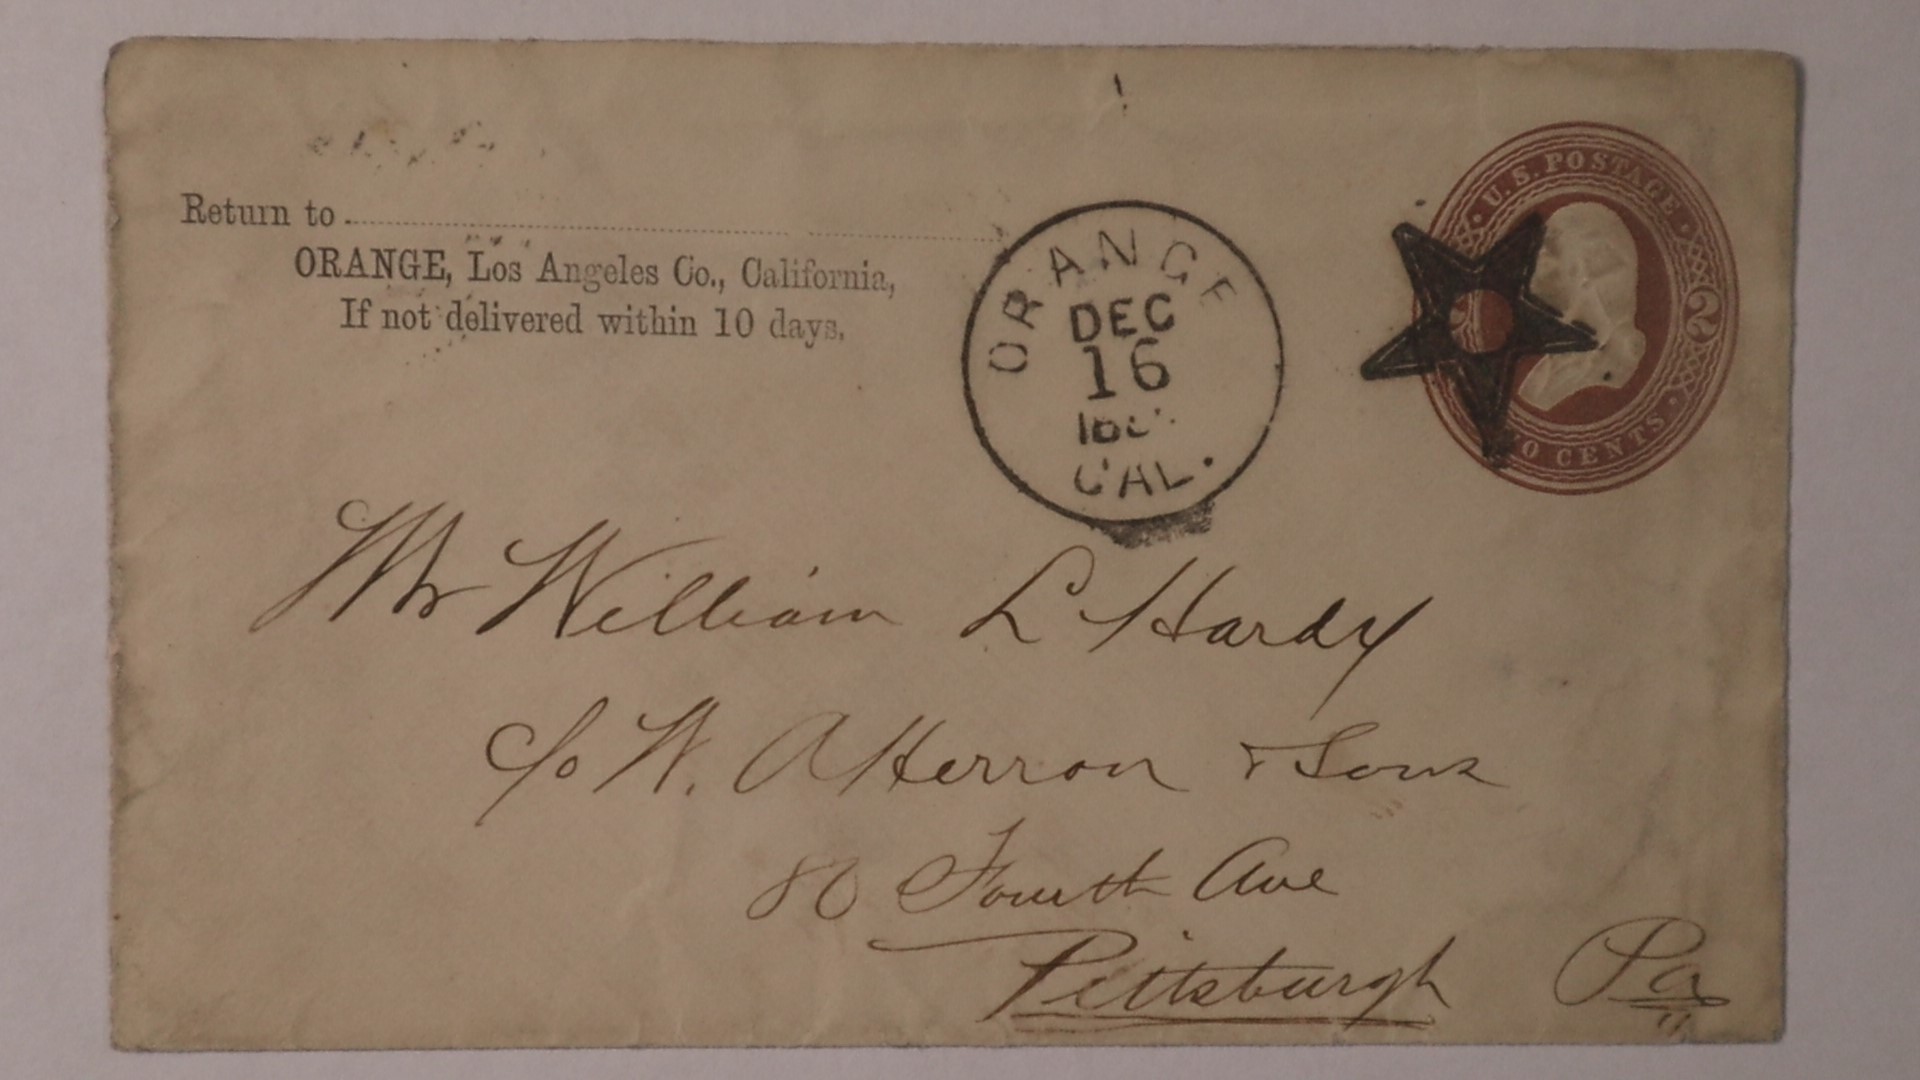 Return to
ORANGE, Los Angeles Co., California,
If not delivered within 10 days.
ORANGE
DEC
16
CAL.
U.S. POSTAGE
2
CENTS
Mr William L Hardy
c/o W. A Herron & Sons
80 Fourth Ave
Pittsburgh Pa